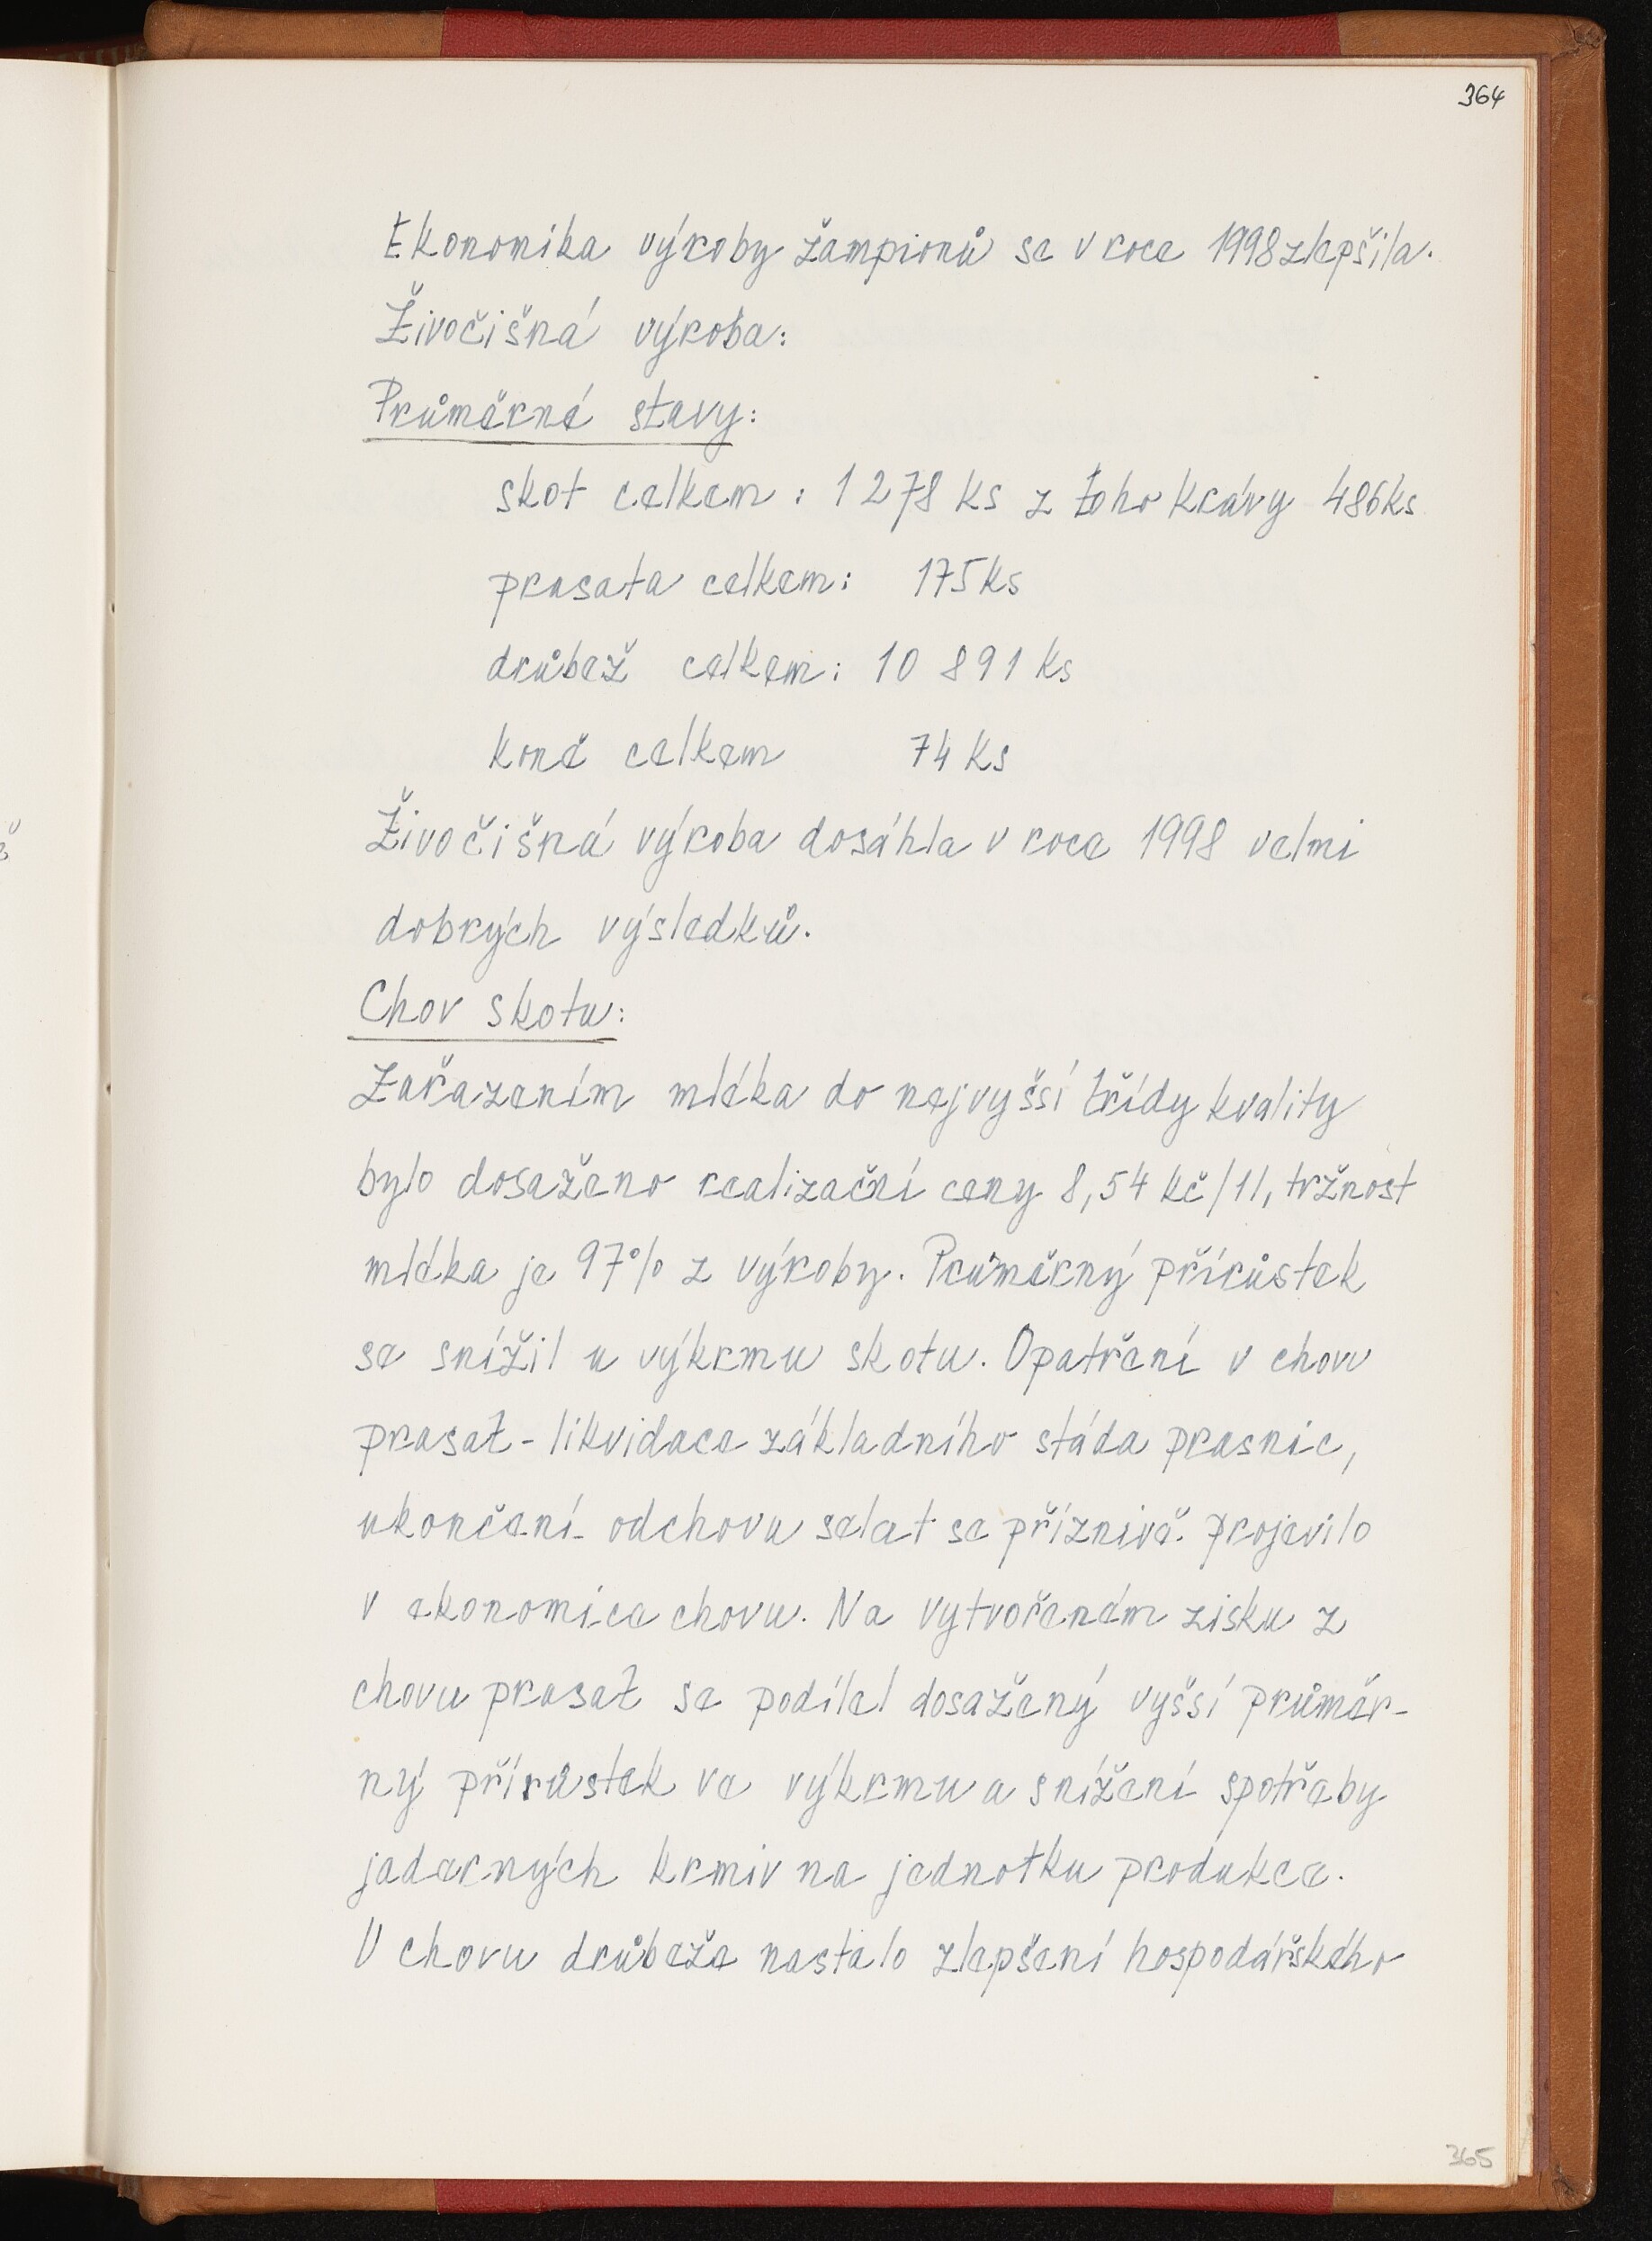 364
Ekonomika výroby žampionů se v roce 1998 zlepšila.
Živočišná výroba:
Průměrné stavy:
skot celkem : 1 278 ks z toho krávy 486 ks
prasata celkem: 175 ks
drůbež celkem: 10 891 ks
koně celkem 74 ks
Živočišná výroba dosáhla v roce 1998 velmi
dobrých výsledků.
Chov skotu:
Zařazením mléka do nejvyšší třídy kvality
bylo dosaženo realizační ceny 8,54 kč/1l, tržnost
mléka je 97% z výroby. Průměrný přírůstek
se snížil u výkrmu skotu. Opatření v chovu
prasat - likvidace základního stáda prasnic,
ukončení odchovu selat se příznivě projevilo
v ekonomice chovu. Na vytvořeném zisku z
chovu prasat se podílel dosažený vyšší průměr-
ný přírůstek ve výkrmu a snížení spotřeby
jaderných krmiv na jednotku produkce.
V chovu drůbeže nastalo zlepšení hospodářského
365